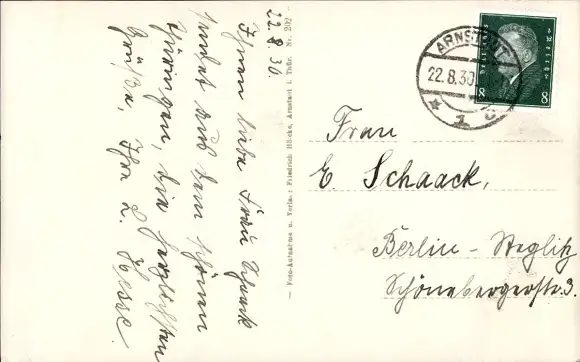 22.8.30.
Ihnen liebe Frau Schaack
sendet aus dem schönen
Thüringen, die herzlichsten
Grüße, Ihr L. Hesse
— Foto-Aufnahme u. Verlag: Friedrich Höcke, Arnstadt i. Thür. Nr. 202 —
ARNSTADT
22.8.30.
* 1 c
Deutsches Reich
8 8
Frau
E. Schaack,
Berlin-Steglitz
Schönebergerstr. 3.